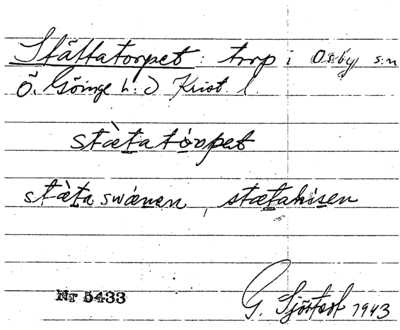 Stättatorpet: torp i Osby s:n
Ö. Göinge h:d Krist l.
stàtatórpet
stàta swánen, stætahúsen
Nr 5433
G. Sjöstedt 1943